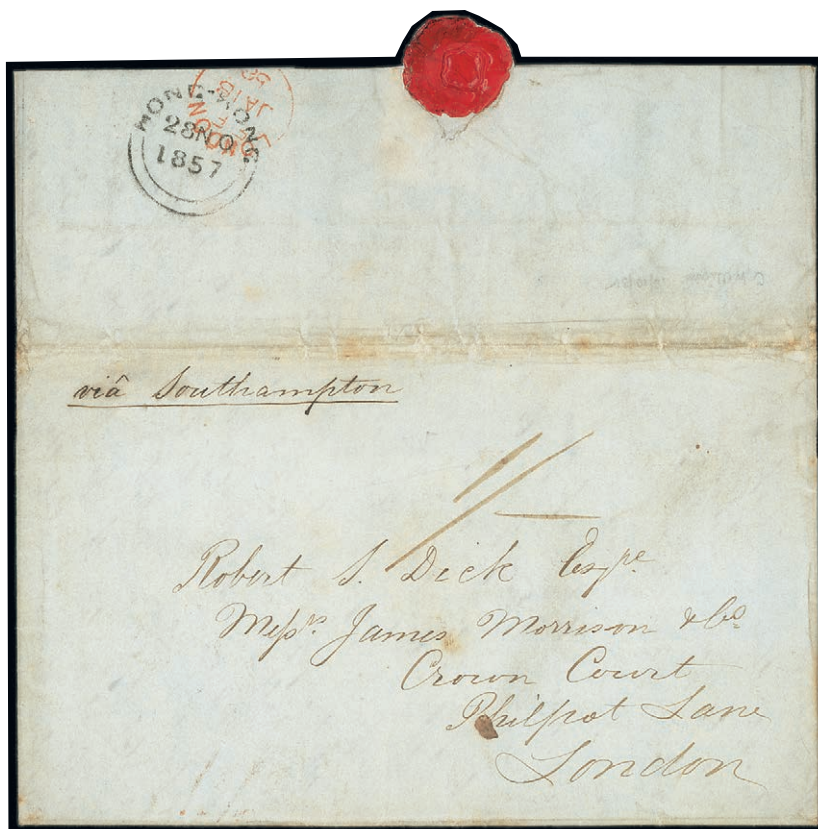 HONG-KONG
28 NO
1857
LONDON
JA 18
58
viâ Southampton
1/-
Robert S. Dick Esqre
Messrs James Morrison & Co
Crown Court
Philpot Lane
London